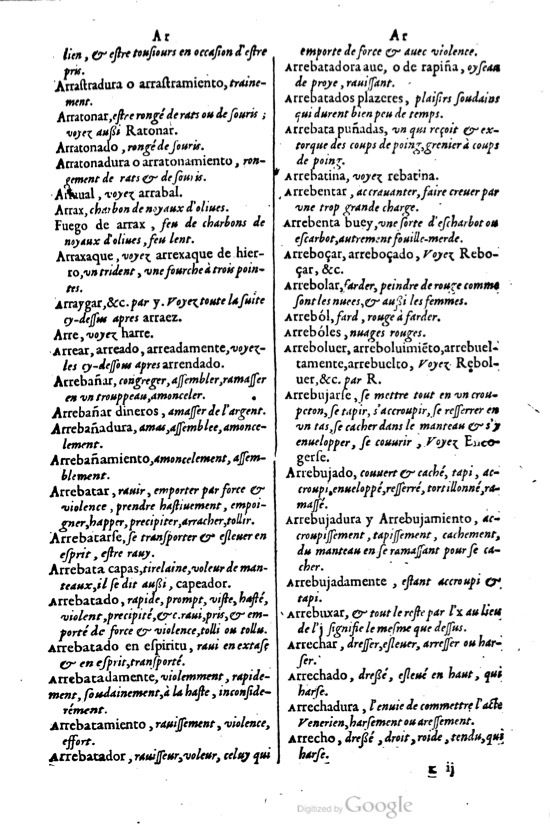 Ar
lien, & eſtre touſiours en occaſion d'eſtre
pris.
Arraſtradura o arraſtramiento, traine-
ment.
Arratonar, eſtre rongé de rats ou de ſouris ;
voyez außi Ratonar.
Arratonado, rongé de ſouris.
Arratonadura o arratonamiento, ron-
gement de rats & de ſouris.
voyez arrabal.
Arrax, charbon de noyaux d'oliues.
Fuego de arrax, feu de charbons de
noyaux d'oliues, feu lent.
Arraxaque, voyez arrexaque de hier-
ro, vn trident, vne fourche à trois poin-
tes.
Arraygar, &c. par y. Voyez toute la ſuite
cy-deſſus apres arraez.
Arre, voyez harre.
Arrear, arreado, arreadamente, voyez-
les cy-deſſous apres arrendado.
Arrebañar, congreger, aſſembler, ramaſſer
en vn trouppeau, amonceler.
Arrebañar dineros, amaſſer de l'argent.
Arrebañadura, amas, aſſemblee, amonce-
lement.
Arrebañamiento, amoncelement, aſſem-
blement.
Arrebatar, rauir, emporter par force &
violence, prendre haſtiuement, empoi-
gner, happer, precipiter, arracher, tollir.
Arrebatarſe, ſe tranſporter & eſleuer en
eſprit, eſtre rauy.
Arrebata capas, tirelaine, voleur de man-
teaux, il ſe dit außi, capeador.
Arrebatado, rapide, prompt, viſte, haſté,
violent, precipité, &c. raui, pris, & em-
porté de force & violence, tolli ou tollu.
Arrebatado en eſpiritu, raui en extaſe
& en eſprit, tranſporté.
Arrebatadamente, violemment, rapide-
ment, ſoudainement, à la haſte, inconſide-
rément.
Arrebatamiento, rauiſſement, violence,
effort.
Arrebatador, rauiſſeur, voleur, celuy qui
Ar
emporte de force & auec violence.
Arrebatadora aue, o de rapiña, oyſeau
de proye, rauiſſant.
Arrebatados plazeres, plaiſirs ſoudains
qui durent bien peu de temps.
Arrebata puñadas, vn qui reçoit & ex-
torque des coups de poing, grenier à coups
de poing.
Arrebatina, voyez rebatina.
Arrebentar, accrauanter, faire creuer par
vne trop grande charge.
Arrebenta buey, vne ſorte d'eſcharbot ou
eſcarbot, autrement fouille-merde.
Arreboçar, arreboçado, Voyez Rebo-
çar, &c.
Arrebolar, farder, peindre de rouge comme
ſont les nuees, & außi les femmes.
Arreból, fard, rouge à farder.
Arrebóles, nuages rouges.
Arreboluer, arreboluimiẽto, arrebuel-
tamente, arrebuelto, Voyez Rebol-
uer, &c. par R.
Arrebujarſe, ſe mettre tout en vn crou-
peton, ſe tapir, s'accroupir, ſe reſſerrer en
vn tas, ſe cacher dans le manteau & s'y
enuelopper, ſe couurir, Voyez Enco-
gerſe.
Arrebujado, couuert & caché, tapi, ac-
croupi, enueloppé, reſſerré, tortillonné, ra-
maſſé.
Arrebujadura y Arrebujamiento, ac-
croupiſſement, tapiſſement, cachement,
du manteau en ſe ramaſſant pour ſe ca-
cher.
Arrebujadamente, eſtant accroupi &
tapi.
Arrebuxar, & tout le reſte par l'x au lieu
de l'j ſignifie le meſme que deſſus.
Arrechar, dreſſer, eſleuer, arreſſer ou har-
ſer.
Arrechado, dreßé, eſleué en haut, qui
harſe.
Arrechadura, l'enuie de commettre l'acte
Venerien, harſement ou areſſement.
Arrecho, dreßé, droit, roide, tendu, qui
harſe.
E ij
Digitized by Google